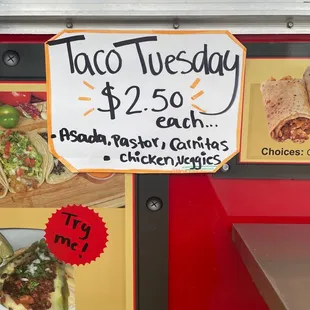 Taco Tuesday
$2.50
each...
• Asada, Pastor, Carnitas
• chicken, veggies
Choices:
Try
me!